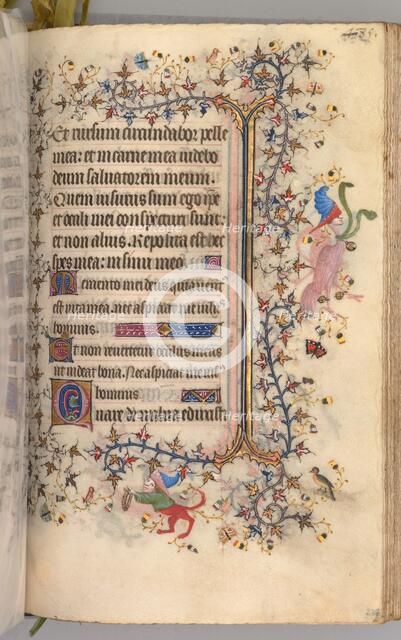 Et rursum circundabor pelle
mea: et in carne mea videbo
deum salvatorem meum.
Quem visurus sum ego ipe
et oculi mei conspecturi sunt:
et non alius. Reposita est hec
spes mea: in sinu meo.
Memento mei deus quia vent
est vita mea. nec aspiciat me visus
hominis.
Et non revertetur oculus meus
ut videat bona. Nec aspiciat me vi
hominis
Quare de vulva eduxist
Heritage
Heritage
Heritage
Heritage